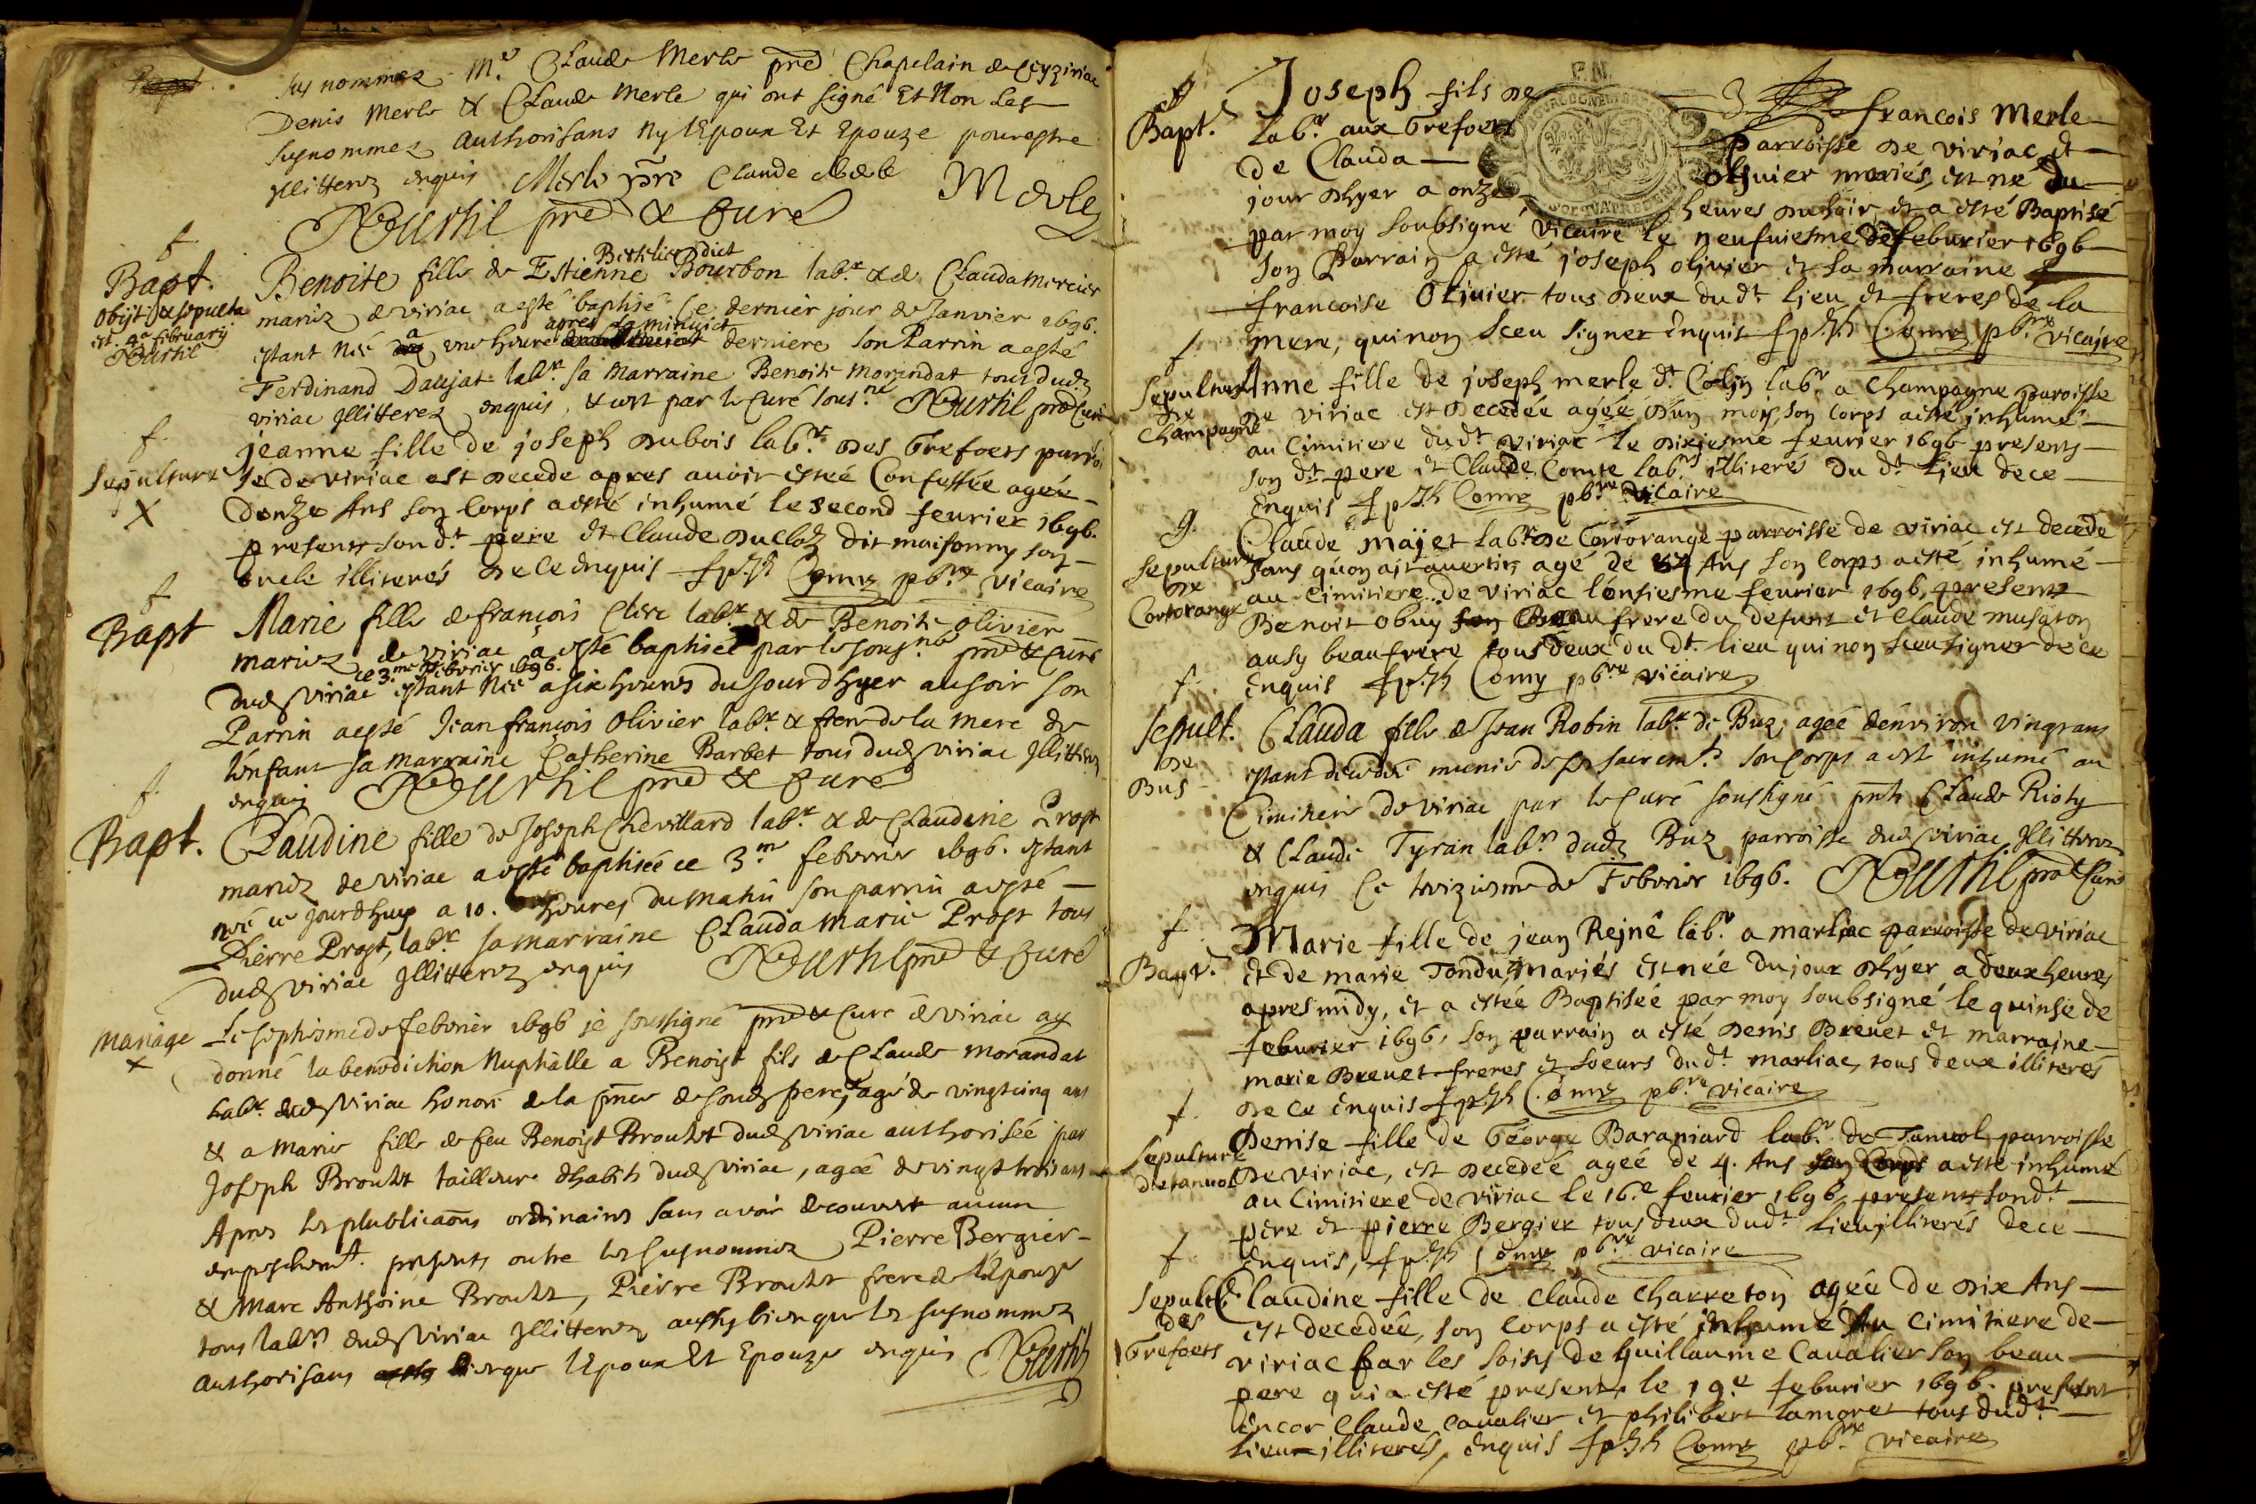 Susnommez Me Claude Merle pred Chapelain de Ceyziriac
Denis Merle & Claude Merle qui ont signé Et Non Les
susnommez authorisans Ny lEpoux Et Epouze pour estre
Illitterez enquis Merle pre Claude Merle Merle
Neurthil pred & Curé
Bapt.
Obijt & sepulta
est 4a february
Berthelier dict
Benoite fille de Estienne Bourbon labr & de Clauda Mercier
mariez de viriac a esté baptisé Ce dernier jour de Janvier 1696.
apres La minuict
estant Née a une heure derniere son Parrin a esté
Ferdinand Daujat labr. sa Marraine Benoite Morandat tous dud
viriac Illitterez enquis, & ont par le Curé sousné
f.
Sepulture
X
jeanne fille de joseph Dubois labr. des Grefoets parroi
se de viriac est Decede apres auoir esteé Confessée agée
Donze Ans son Corps a esté inhumé le second feurier 1696.
presents son dt. pere et Claude Ducloz dit maisonny son
oncle illiterés de ce Enquis vicaire
f
Bapt
Marie fille de françois Clerc labr. & de Benoite olivier
mariez de viriac a esté baptisée par le sousné pred & curé
ce 3.me Febvrier 1696.
dud viriac estant Née a six heures du Jour dhyer au soir son
Parrin a esté Jean françois Olivier labr. & frere de la mere de
lenfant sa marraine Catherine Barbet tous dud viriac Illitterez
enquis pred & Curé
f.
Bapt.
Claudine fille de Joseph Chevillard labr. & de Claudine Prost
mariez de viriac a esté baptisée ce 3.me febvrier 1696. estant
née ce jourdhuy a 10. heures du matin son parrin a esté
Pierre Prost, labr. sa marraine Clauda Marie Prost tous
dud viriac Illitterez enquis pred & Curé
Mariage
X
Le septiesme de Febvrier 1696 je soussigné pred & Curé de viriac ay
donné la benediction Nuptialle a Benoist fils de Claude Morandat
labr. dud viriac honoré de la pnce de soud pere, agé de vingtcinq ans
& a Marie fille de feu Benoist Broulet dud viriac authorisée par
Joseph Broulet tailleur dhabits dud viriac, agée de vingt trois ans
Apres les plublicaons ordinaires sans avoir decouvert aucun
empeschemt. presents outre les susnommez Pierre Bergier
& Marc Anthoine Broulet, Pierre Broulet frere de lEpouze
tous labrs dud viriac Illitterez aussy bien que les susnommez
authorisans bienque lEpoux Et Epouze enquis
f
Bapt.
Joseph fils de françois Merle
labr. aux Grefoets parroisse de viriac et
de Clauda oliuier mariés, est né du
jour dhyer a onze heures du soir, et a esté Baptisé
par moy soubsigné vicaire le neufuiesme de feburier 1696
son Parrain a esté joseph oliuier et sa marraine
francoise Oliuier tous deux du dt. lieu et freres de la
mere, qui non sceu signer Enquis pbre vicaire
f
Sepulture
de
Champagne
Anne fille de joseph merle dt. Colin labr a Champagne paroisse
de viriac est Decedée agéé d'un mois, son corps a esté inhumé
au Cimitiere du dt viriac le dixiesme feurier 1696 presents
son dt pere et Claude Comte labrs illiterés du dt. lieu dece
Enquis pbre vicaire
g.
Sepulture
de
Cortorange
Claude majet labr. de Cortorange parroisse de viriac est decedé
sans quon ait auertis agé de Ans son Corps a esté inhumé
au Cimitiere de viriac l'onsiesme feurier 1696, presents
Benoit obuy beau frere du defunt et Claude musaton
ausy beaufrere tous deux du dt. lieu qui non sceu signer de ce
Enquis pbre vicaire
f.
Sepult.
de
Bus
Clauda fille de Jean Robin labr. de Buz, agéé denviron vingt ans
estant decedée munie de ses sacremts. son Corps a esté inhumé au
Cimitiere de viriac par le Curé soussigné pnts Claude Rioty
& Claude Tyran labrs dud Buz parroisse dud viriac Illitterez
enquis Ce treiziesme de Febvrier 1696.
f
Bapt.
Marie fille de jean Rejné labr. a marliac parroisse de viriac
et de marie Tondu, mariés est née du jour dhyer a deux heures
apres midy, et a estée Baptisée par moy soubsigné le quinse de
feburier 1696, son parrain a esté Denis Breuet et marraine
marie Breuet freres et soeurs du dt. marliac, tous deux illiterés
de ce Enquis pbre vicaire
f.
Sepulture
de tanuol
Denise fille de George Baraniard labr. de Tanuol parroisse
de viriac, est decedeé ageé de 4. Ans son Corps a esté inhumé
au Cimitiere de viriac le 16.e feurier 1696, presents sondt.
pere et pierre Bergier tous deux du dt. lieu illiterés dece
Enquis, pbre vicaire
f.
Sepult.
des
Grefoets
Claudine fille de Claude Charreton ageé de dix Ans
est decedeé, son Corps a esté inhumé Au Cimitiere de
viriac par les soins de Guillaume Caualier son beau
pere qui a esté present, le 19.e feburier 1696. present
Encor Claude Caualier et philibert lamoret tous du dt.
lieu illiterés, Enquis pbre vicaire